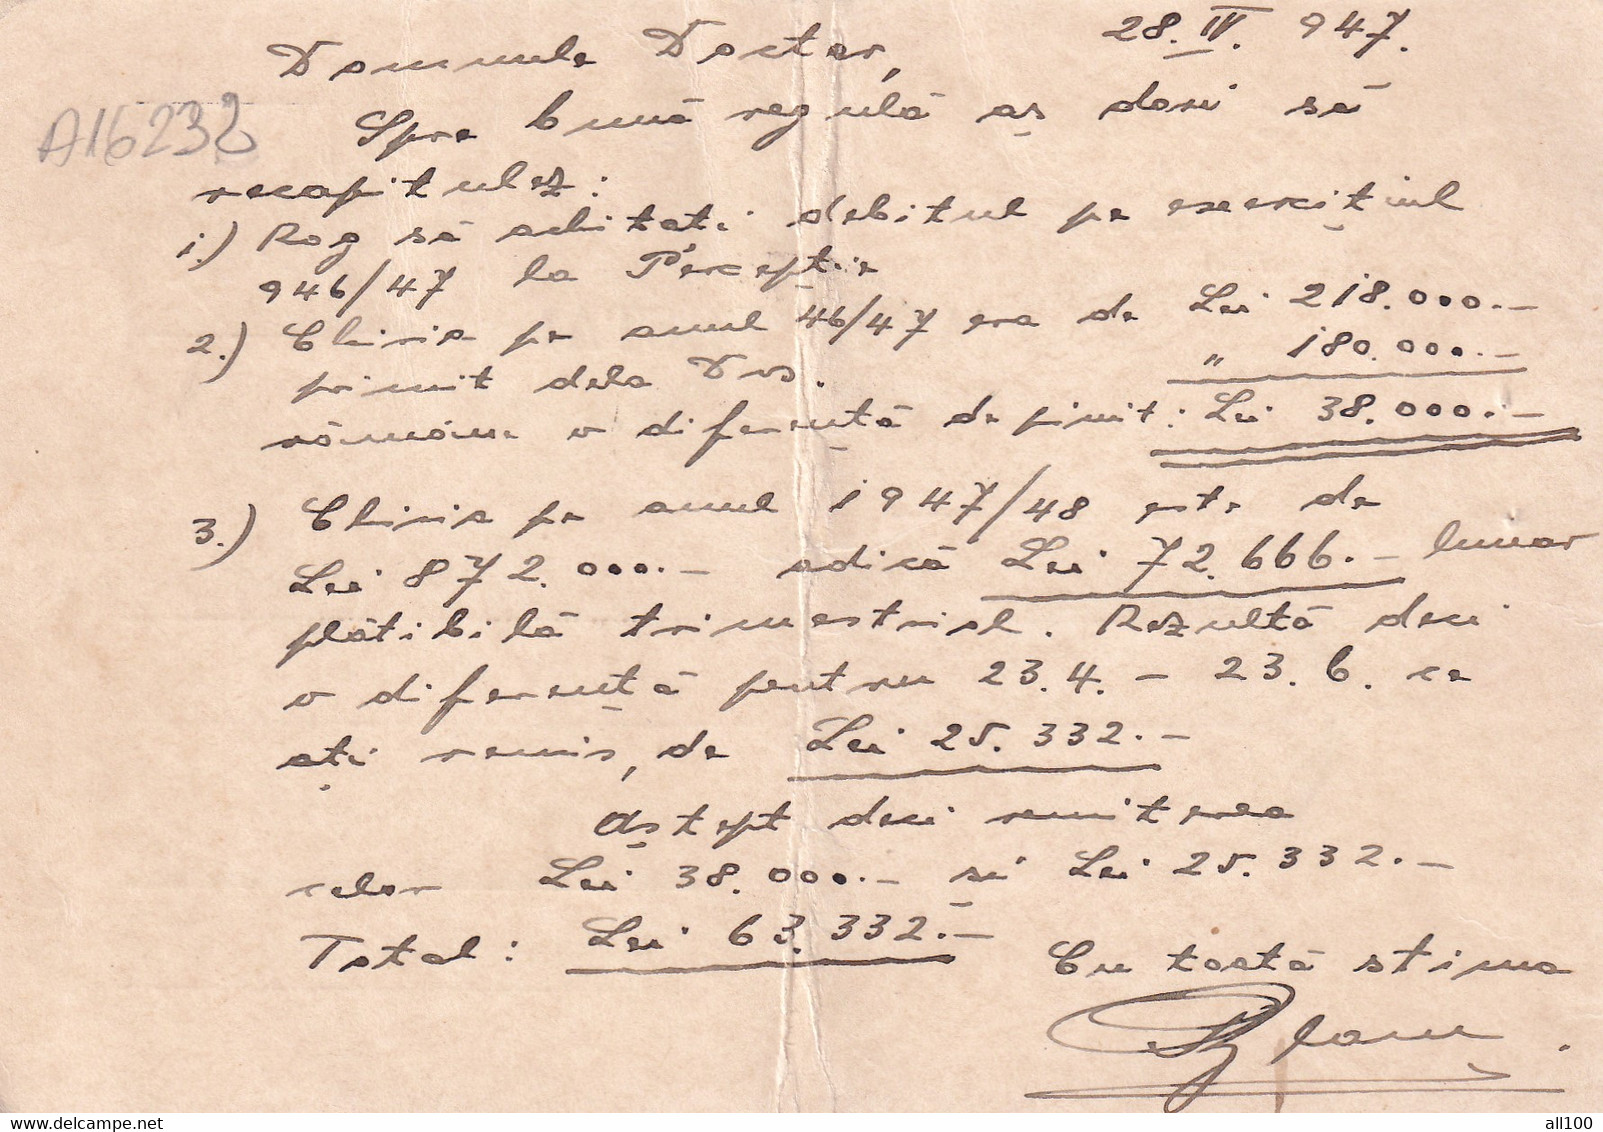 28.IV. 947.
Domnule Doctor,
A16232
Spre bună regulă aș dori să
recapitulez:
1.) Rog să achitați debitul pe exercițiul
946/47 la Percepție
2.) Chiria pe anul 46/47 era de Lei 218.000.-
primit dela Dvs. " 180.000.-
rămâne o diferență de primit: Lei 38.000.-
3.) Chiria pe anul 1947/48 este de
Lei 872.000.- adică Lei 72.666.- lunar
plătibilă trimestrial. Rezultă deci
o diferență pentru 23.4. - 23.6. ce
ați remis, de Lei 25.332.-
Aștept deci remiterea
celor Lei 38.000.- și Lei 25.332.-
Total: Lei 63.332.-
Cu toată stima
delcampe.net
all100